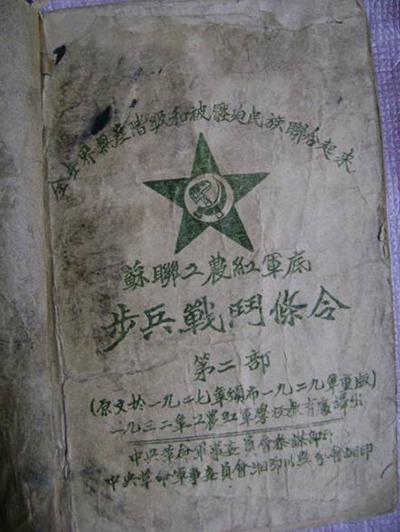 全世界無產階級和被壓迫民族聯合起來
蘇聯工農紅軍底
步兵戰鬥條令
第二部
(原文於一九二七年頒布一九二九年重版)
一九三二年工農紅軍學校教育處譯出
中央革命軍事委員會參謀部
中央革命軍事委員會湘鄂川黔分會翻印